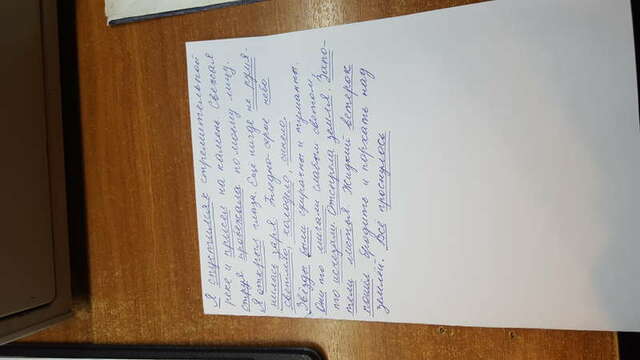 Я спустился к стремительной
реке и присел на камень. Свежая
струя пробежала по моему лицу.
Я открыл глаза. Еще нигде не румя-
нилась заря. Бледно-серое небо
светлело, холодело, синело.
Звёзды были прозрачны и туманны.
Они то мигали слабым светом,
то исчезали. Отсырела земля. Запо-
тели листья. Жидкий ветерок
пошёл бродить и порхать над
землёй. Все проснулось